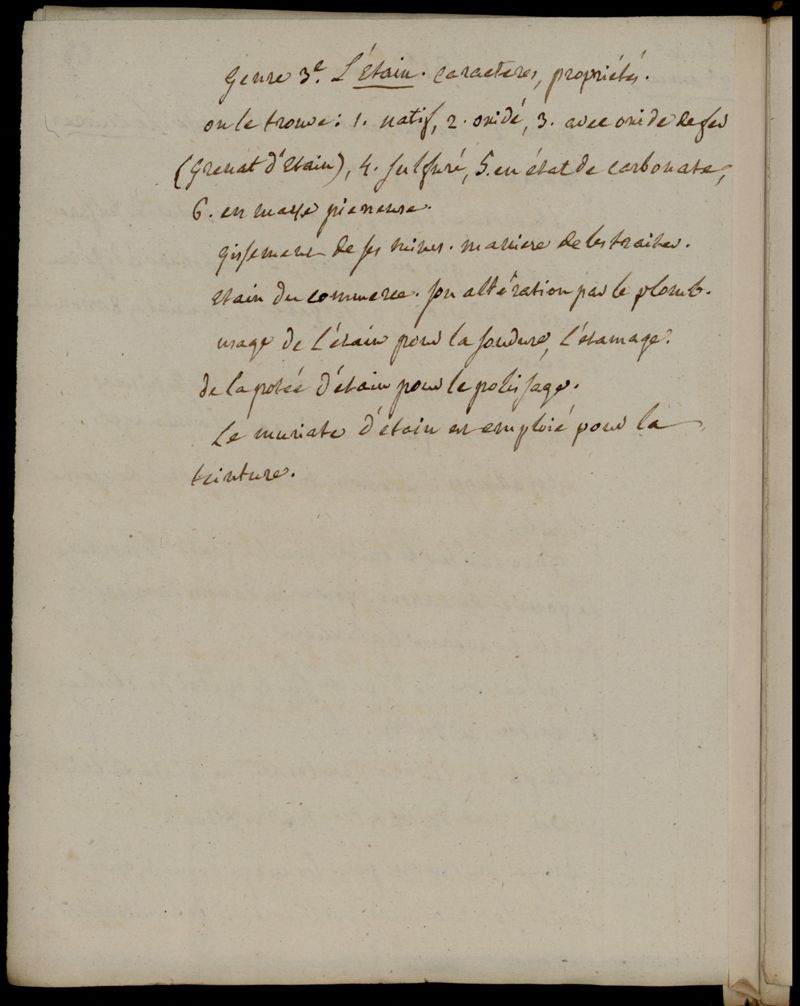 Genre 3e. L'étain. caracteres, propriétés.
on le trouve: 1. natif, 2. oxidé, 3. avec oxide de fer
(Grenat d'étain), 4. sulfuré, 5. en état de carbonate,
6. en masse pierreuse.
gissement de ses mines. maniere de les traiter.
etain du commerce. son altération par le plomb.
usage de l'étain pour la soudure, l'étamage.
de la potée d'étain pour le polissage.
Le muriate d'étain est emploié pour la
teinture.